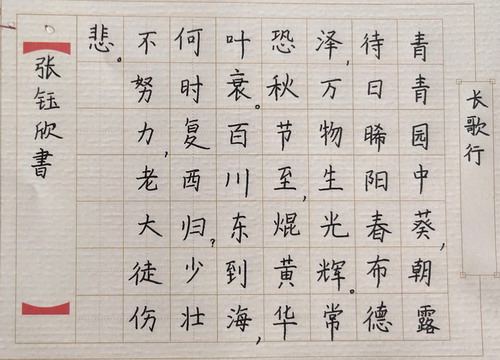 长歌行
青青园中葵,朝露
待日晞阳春布德
泽,万物生光辉。常
恐秋节至,焜黄华
叶衰。百川东到海,
何时复西归?少壮
不努力,老大徒伤
悲。
张钰欣書